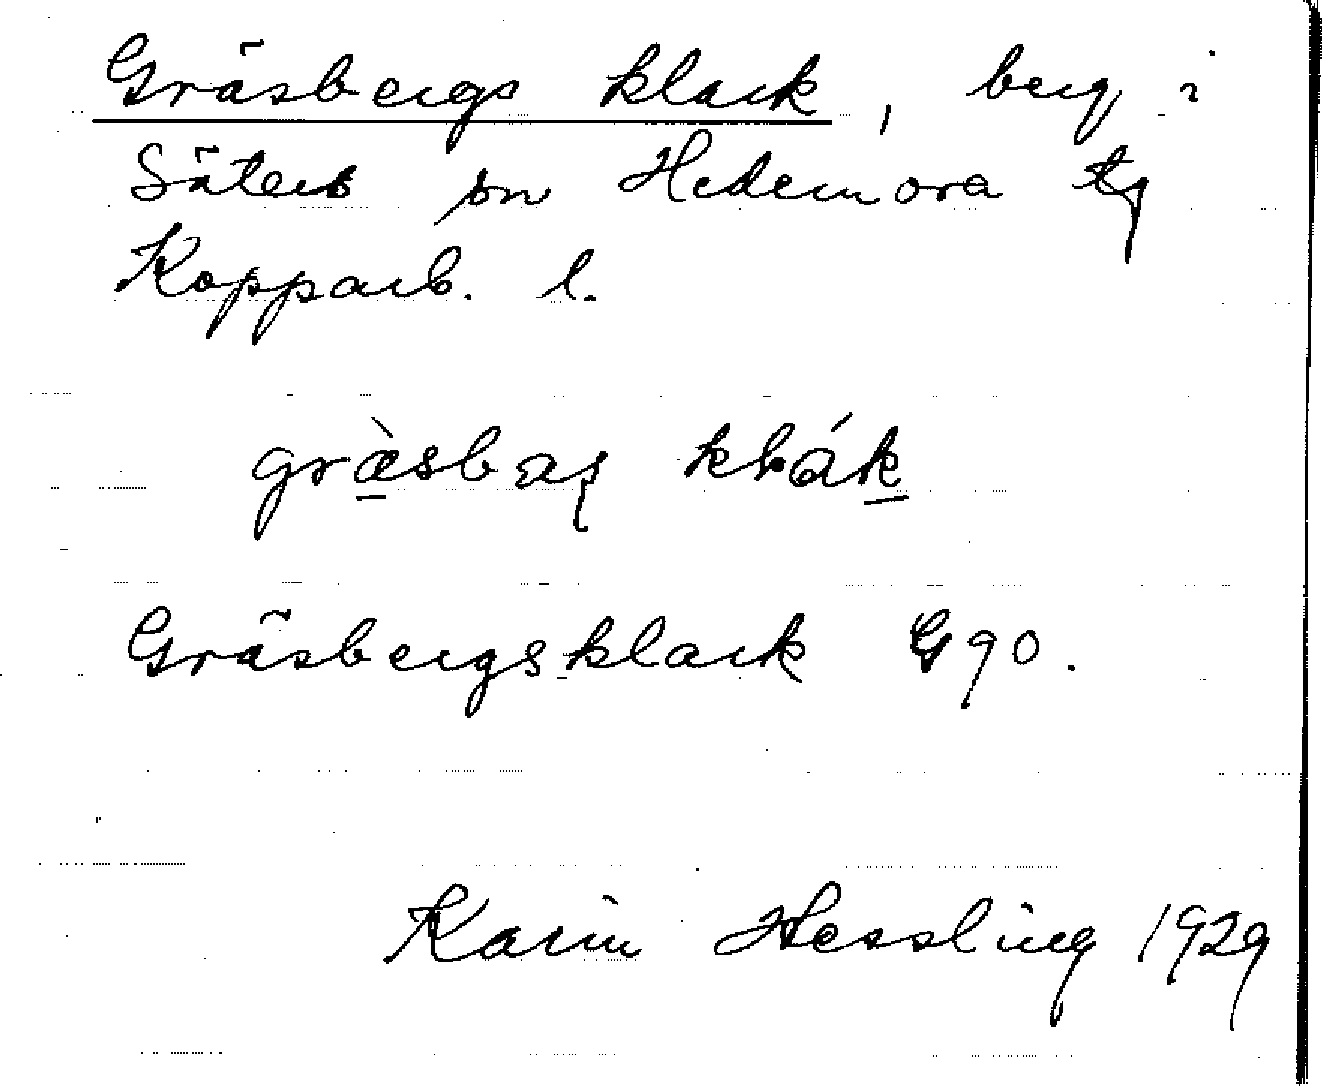 Gräsbergs klack, berg i
Säters sn Hedemora tg
Kopparb. l.
gràsbaʂ kɫák
Gräsbergsklack G90.
Karin Hessling 1929